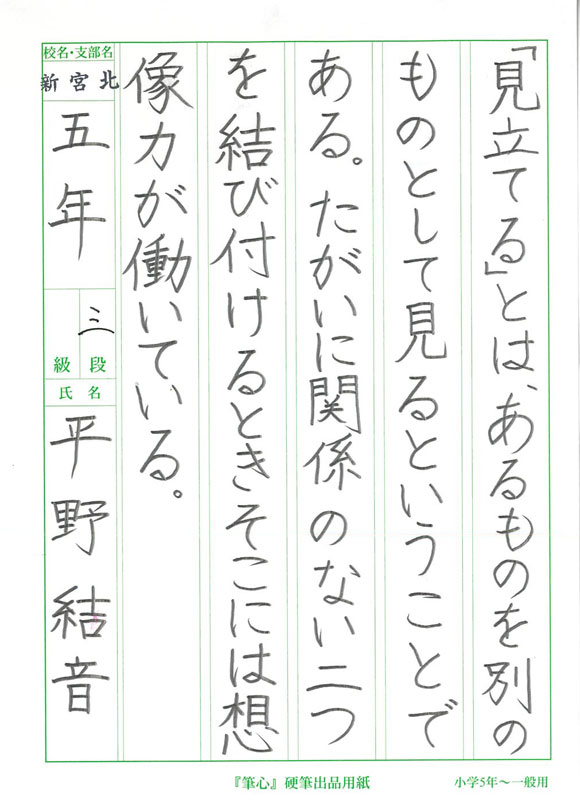 「見立てる」とは、あるものを別の
ものとして見るということで
ある。たがいに関係のない二つ
を結び付けるときそこには想
像力が働いている。
校名・支部名
新宮北
五年
三
段
級
氏名
平野結音
『筆心』硬筆出品用紙
小学5年〜一般用